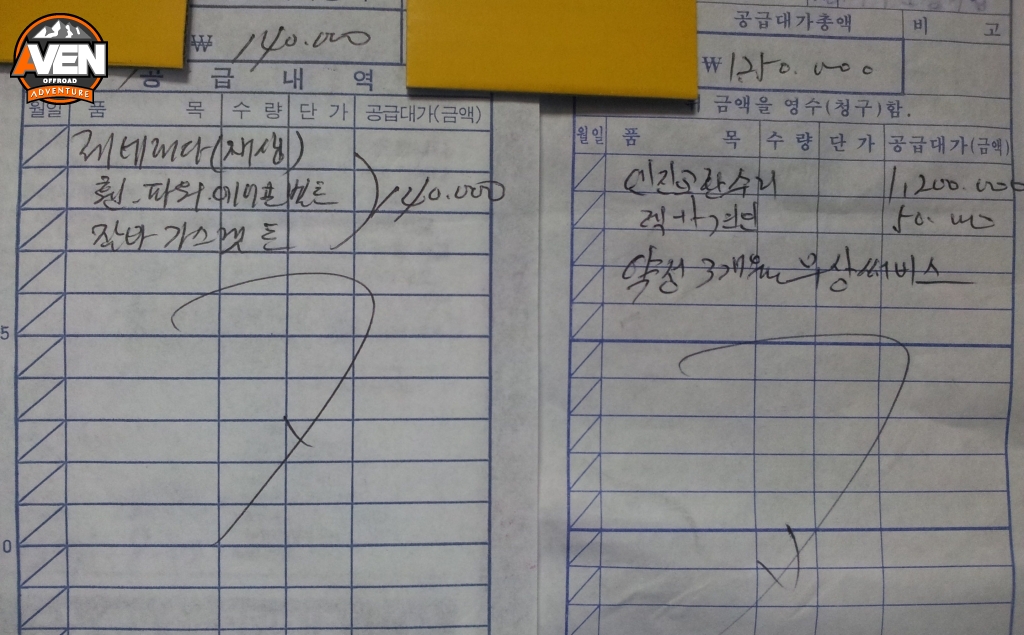 AVEN
OFFROAD
ADVENTURE
₩ 140.000
공 급 내 역
월일 품 목 수 량 단 가 공급대가(금액)
제네레다(재생)
휀.파워.에어콘 벨트
140.000
잔바 가스켓트
5
0
공급대가총액 비 고
₩ 1,250.000
금액을 영수(청구)함.
월일 품 목 수 량 단 가 공급대가(금액)
엔진오란수리 1,200.000
50.000
약정 3개월 무상써비스